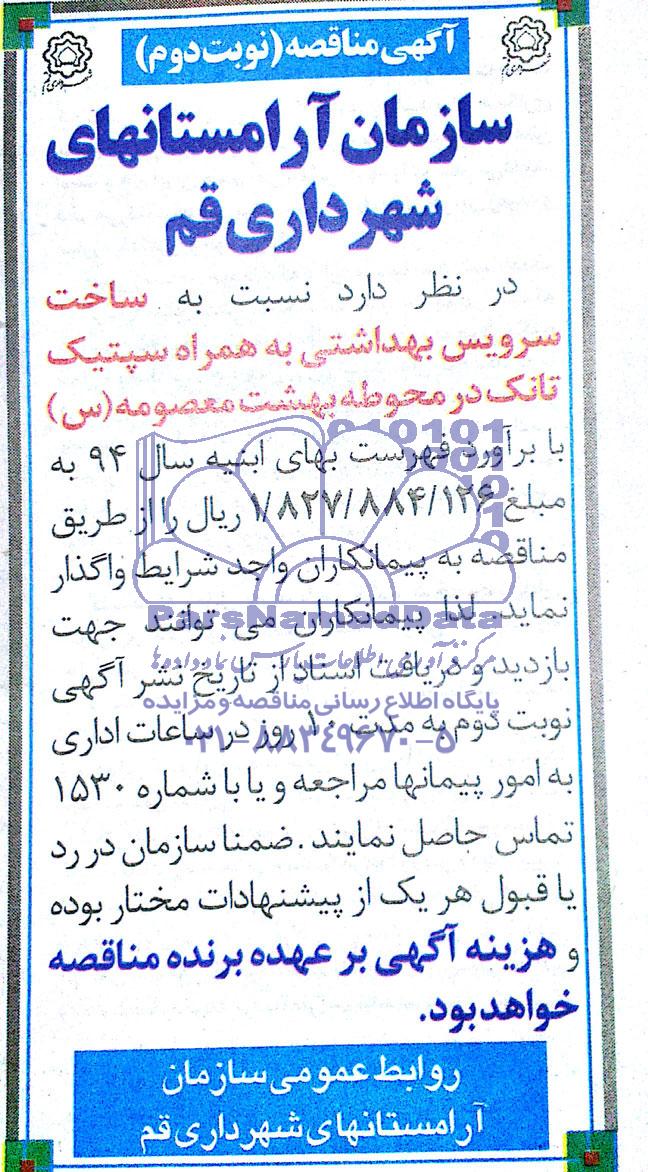 آگهی مناقصه (نوبت دوم)
سازمان آرامستانهای
شهرداری قم
در نظر دارد نسبت به ساخت
سرویس بهداشتی به همراه سپتیک
تانک در محوطه بهشت معصومه (س)
با برآورد فهرست بهای ابنیه سال ۹۴ به
مبلغ ۱/۸۲۷/۸۸۴/۱۲۶ ریال را از طریق
مناقصه به پیمانکاران واجد شرایط واگذار
نماید. لذا پیمانکاران می توانند جهت
ParsNamadData
بازدید و دریافت اسناد از تاریخ نشر آگهی
پایگاه اطلاع رسانی مناقصه و مزایده
نوبت دوم به مدت ۱۰ روز در ساعات اداری
۰۲۱-۸۸۳۴۹۶۷۰-۵
به امور پیمانها مراجعه و یا با شماره ۱۵۳۰
تماس حاصل نمایند. ضمنا سازمان در رد
یا قبول هر یک از پیشنهادات مختار بوده
و هزینه آگهی بر عهده برنده مناقصه
خواهد بود.
روابط عمومی سازمان
آرامستانهای شهرداری قم